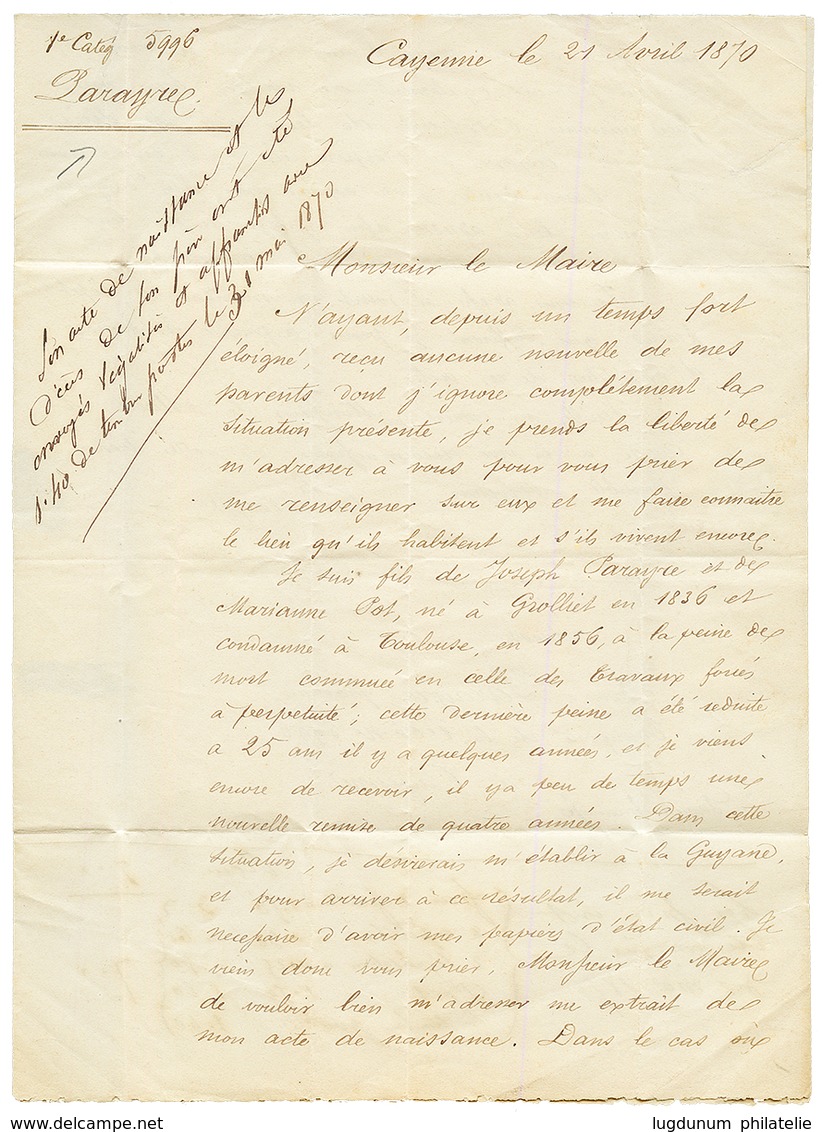 1e Categ 5996
Parayre
Cayenne le 21 Avril 1870
Son acte de naissance et les
décès de son père ont été
envoyés légalisés et affranchis avec
1.40 de timbres postes le 31 mai 1870
Monsieur le Maire
N'ayant, depuis un temps fort
éloigné, reçu aucune nouvelle de mes
parents dont j'ignore complétement la
situation présente, je prends la liberté de
m'adresser à vous pour vous prier de
me renseigner sur eux et me faire connaitre
le lieu qu'ils habitent et s'ils vivent encore.
Je suis fils de Joseph Parayre et de
Marianne Pot, né à Grolliet en 1836 et
condamné à Toulouse, en 1856, à la peine de
mort commuée en celle des travaux forcés
à perpétuité; cette dernière peine a été réduite
a 25 ans il y a quelques années, et je viens
encore de recevoir, il y a peu de temps une
nouvelle remise de quatre années. Dans cette
situation, je désirerais m'établir à la Guyane,
et pour arriver à ce résultat, il me serait
necessaire d'avoir mes papiers d'état civil. Je
viens donc vous prier, Monsieur le Maire
de vouloir bien m'adresser une extrait de
mon acte de naissance. Dans le cas où
lugdunum philatelie
www.delcampe.net